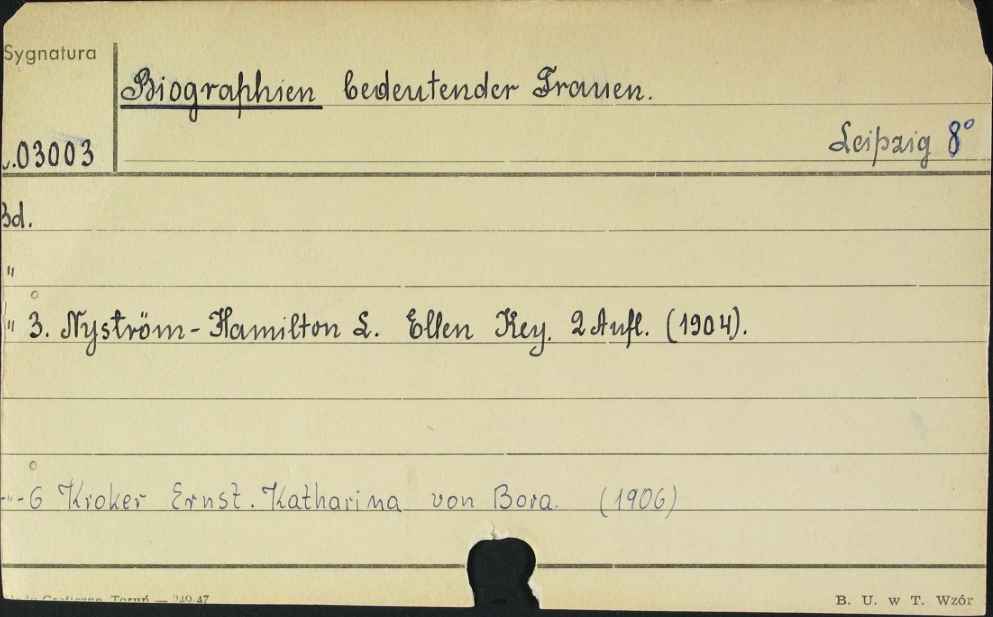 Sygnatura
Biographien bedeutender Frauen.
Leipzig 8°
.03003
Bd.
"
" 3. Nyström-Hamilton L. Ellen Key. 2 Aufl. (1904).
-"- 6 Kroker Ernst. Katharina von Bora. (1906)
Toruń — 249.47
B. U. w T. Wzór